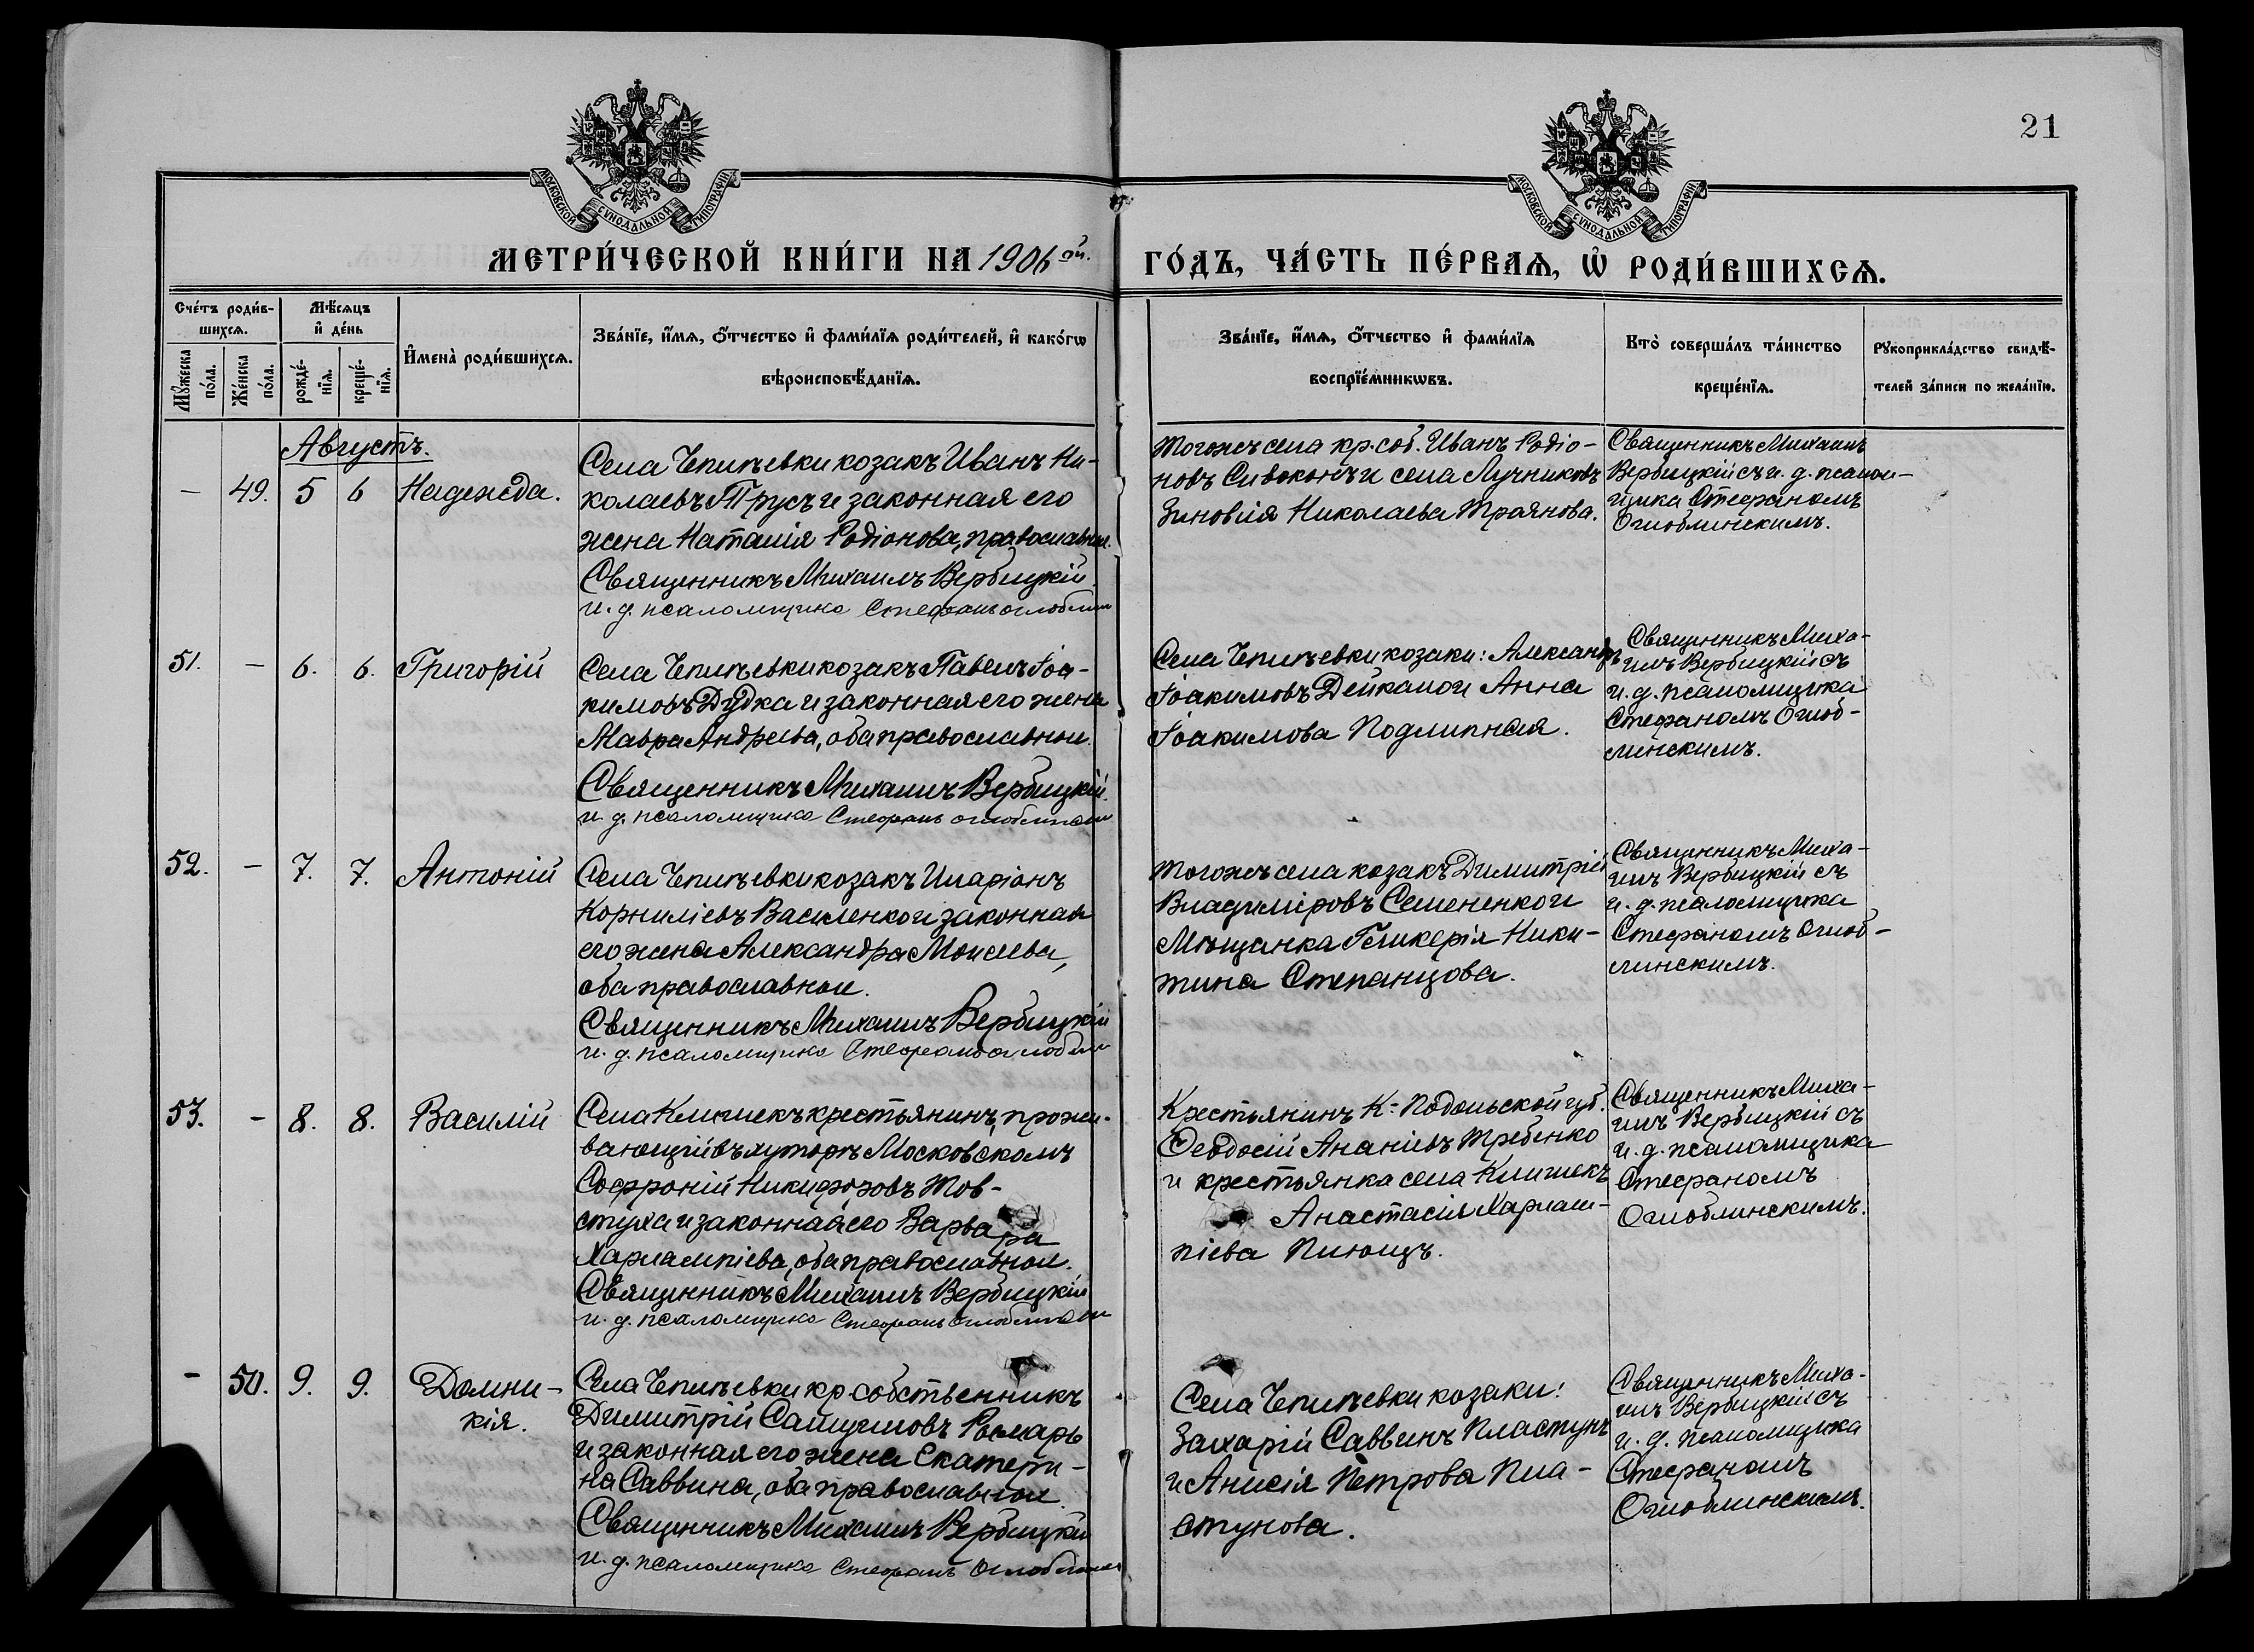 21
МОСКОВСКОЙ СѴНОДАЛЬНОЙ ТИПОГРАФІИ
МОСКОВСКОЙ СѴНОДАЛЬНОЙ ТИПОГРАФІИ
МЕТРИ́ЧЕСКОЙ КНИ́ГИ НА 1906 ой.
ГО́ДЪ, ЧА́СТЬ ПЕ́РВАѦ, Ѡ҆ РОДИ́ВШИХСѦ.
Сче́тъ роди́в-
шихсѧ.
Мꙋ́жеска по́ла.
Же́нска по́ла.
Мѣ́сѧцъ
и҆ де́нь
рожде́-
нїѧ.
креще́-
нїѧ.
И҆мена̀ роди́вшихсѧ.
Зва́нїе, и҆́мѧ, ѻ҆́тчество и҆ фами́лїѧ роди́телей, и҆ како́гѡ
вѣроисповѣ́данїѧ.
Зва́нїе, и҆́мѧ, ѻ҆́тчество и҆ фами́лїѧ
воспрїе́мникѡвъ.
Кто̀ соверша́лъ та́инство
креще́нїѧ.
Рꙋкоприкла́дство свидѣ́-
телей за́писи по жела́нїю.
Августъ.
— 49. 5 6 Надежда.
Села Чепиѣевки козакъ Иванъ Ни-
колаевъ Трусъ и законная его
жена Наталія Родіонова, православные.
Священникъ Михаилъ Вербицкій.
и. д. псаломщика Стефанъ Оглоблин
Тогоже села кр. соб. Иванъ Родіо-
новъ Сивоконь и села Лучниковъ
Зиновія Николаева Траянова.
Священникъ Михаилъ
Вербицкій съ и. д. псалом-
щика Стефаномъ
Оглоблинскимъ.
51. — 6. 6. Григорій
Села Чепиѣевки козакъ Павелъ Іоа-
кимовъ Дудка и законная его жена
Мавра Андреева, оба православные.
Священникъ Михаилъ Вербицкій.
и. д. псаломщика Стефанъ Оглоблин
Села Чепиѣевки козаки: Александръ
Іоакимовъ Дейкало и Анна
Іоакимова Подлипная.
Священникъ Миха-
илъ Вербицкій съ
и. д. псаломщика
Стефаномъ Оглоб-
линскимъ.
52. — 7. 7. Антоній
Села Чепиѣевки козакъ Иларіонъ
Корниліевъ Василенко и законная
его жена Александра Моисеева,
оба православные.
Священникъ Михаилъ Вербицкій
и. д. псаломщика Стефанъ Оглоблин
Тогоже села козакъ Димитрій
Владиміровъ Семененко и
Мѣщанка Гликерія Ники-
тина Степанцова.
Священникъ Миха-
илъ Вербицкій съ
и. д. псаломщика
Стефаномъ Оглоб-
линскимъ.
53. — 8. 8. Василій
Села Клишекъ крестьянинъ, прожи-
вающій въ хуторѣ Московскомъ
Софроній Никифоровъ Тов-
стуха и законная его Варва
ра
Харлампіева, оба православные.
Священникъ Михаилъ Вербицкій
и. д. псаломщика Стефанъ Оглоблин
Крестьянинъ К-Подольской губ.
Ѳеодосій Ананіевъ Требенко
и крестьянка села Клишекъ
Анастасія Харлам-
піева Пиющъ.
Священникъ Миха-
илъ Вербицкій съ
и. д. псаломщика
Стефаномъ
Оглоблинскимъ.
— 50. 9. 9. Домни-
кія.
Села Чепиѣевки кр. собственникъ
Димитрій Самуиловъ Рымарь
и законная его жена Екатери-
на Саввина, оба православные.
Священникъ Михаилъ Вербицкій
и. д. псаломщика Стефанъ Оглоблин
Села Чепиѣевки козаки:
Захарій Саввинъ Пластунъ
и Анисія Петрова Пла-
стунова.
Священникъ Миха-
илъ Вербицкій съ
и. д. псаломщика
Стефаномъ
Оглоблинскимъ.